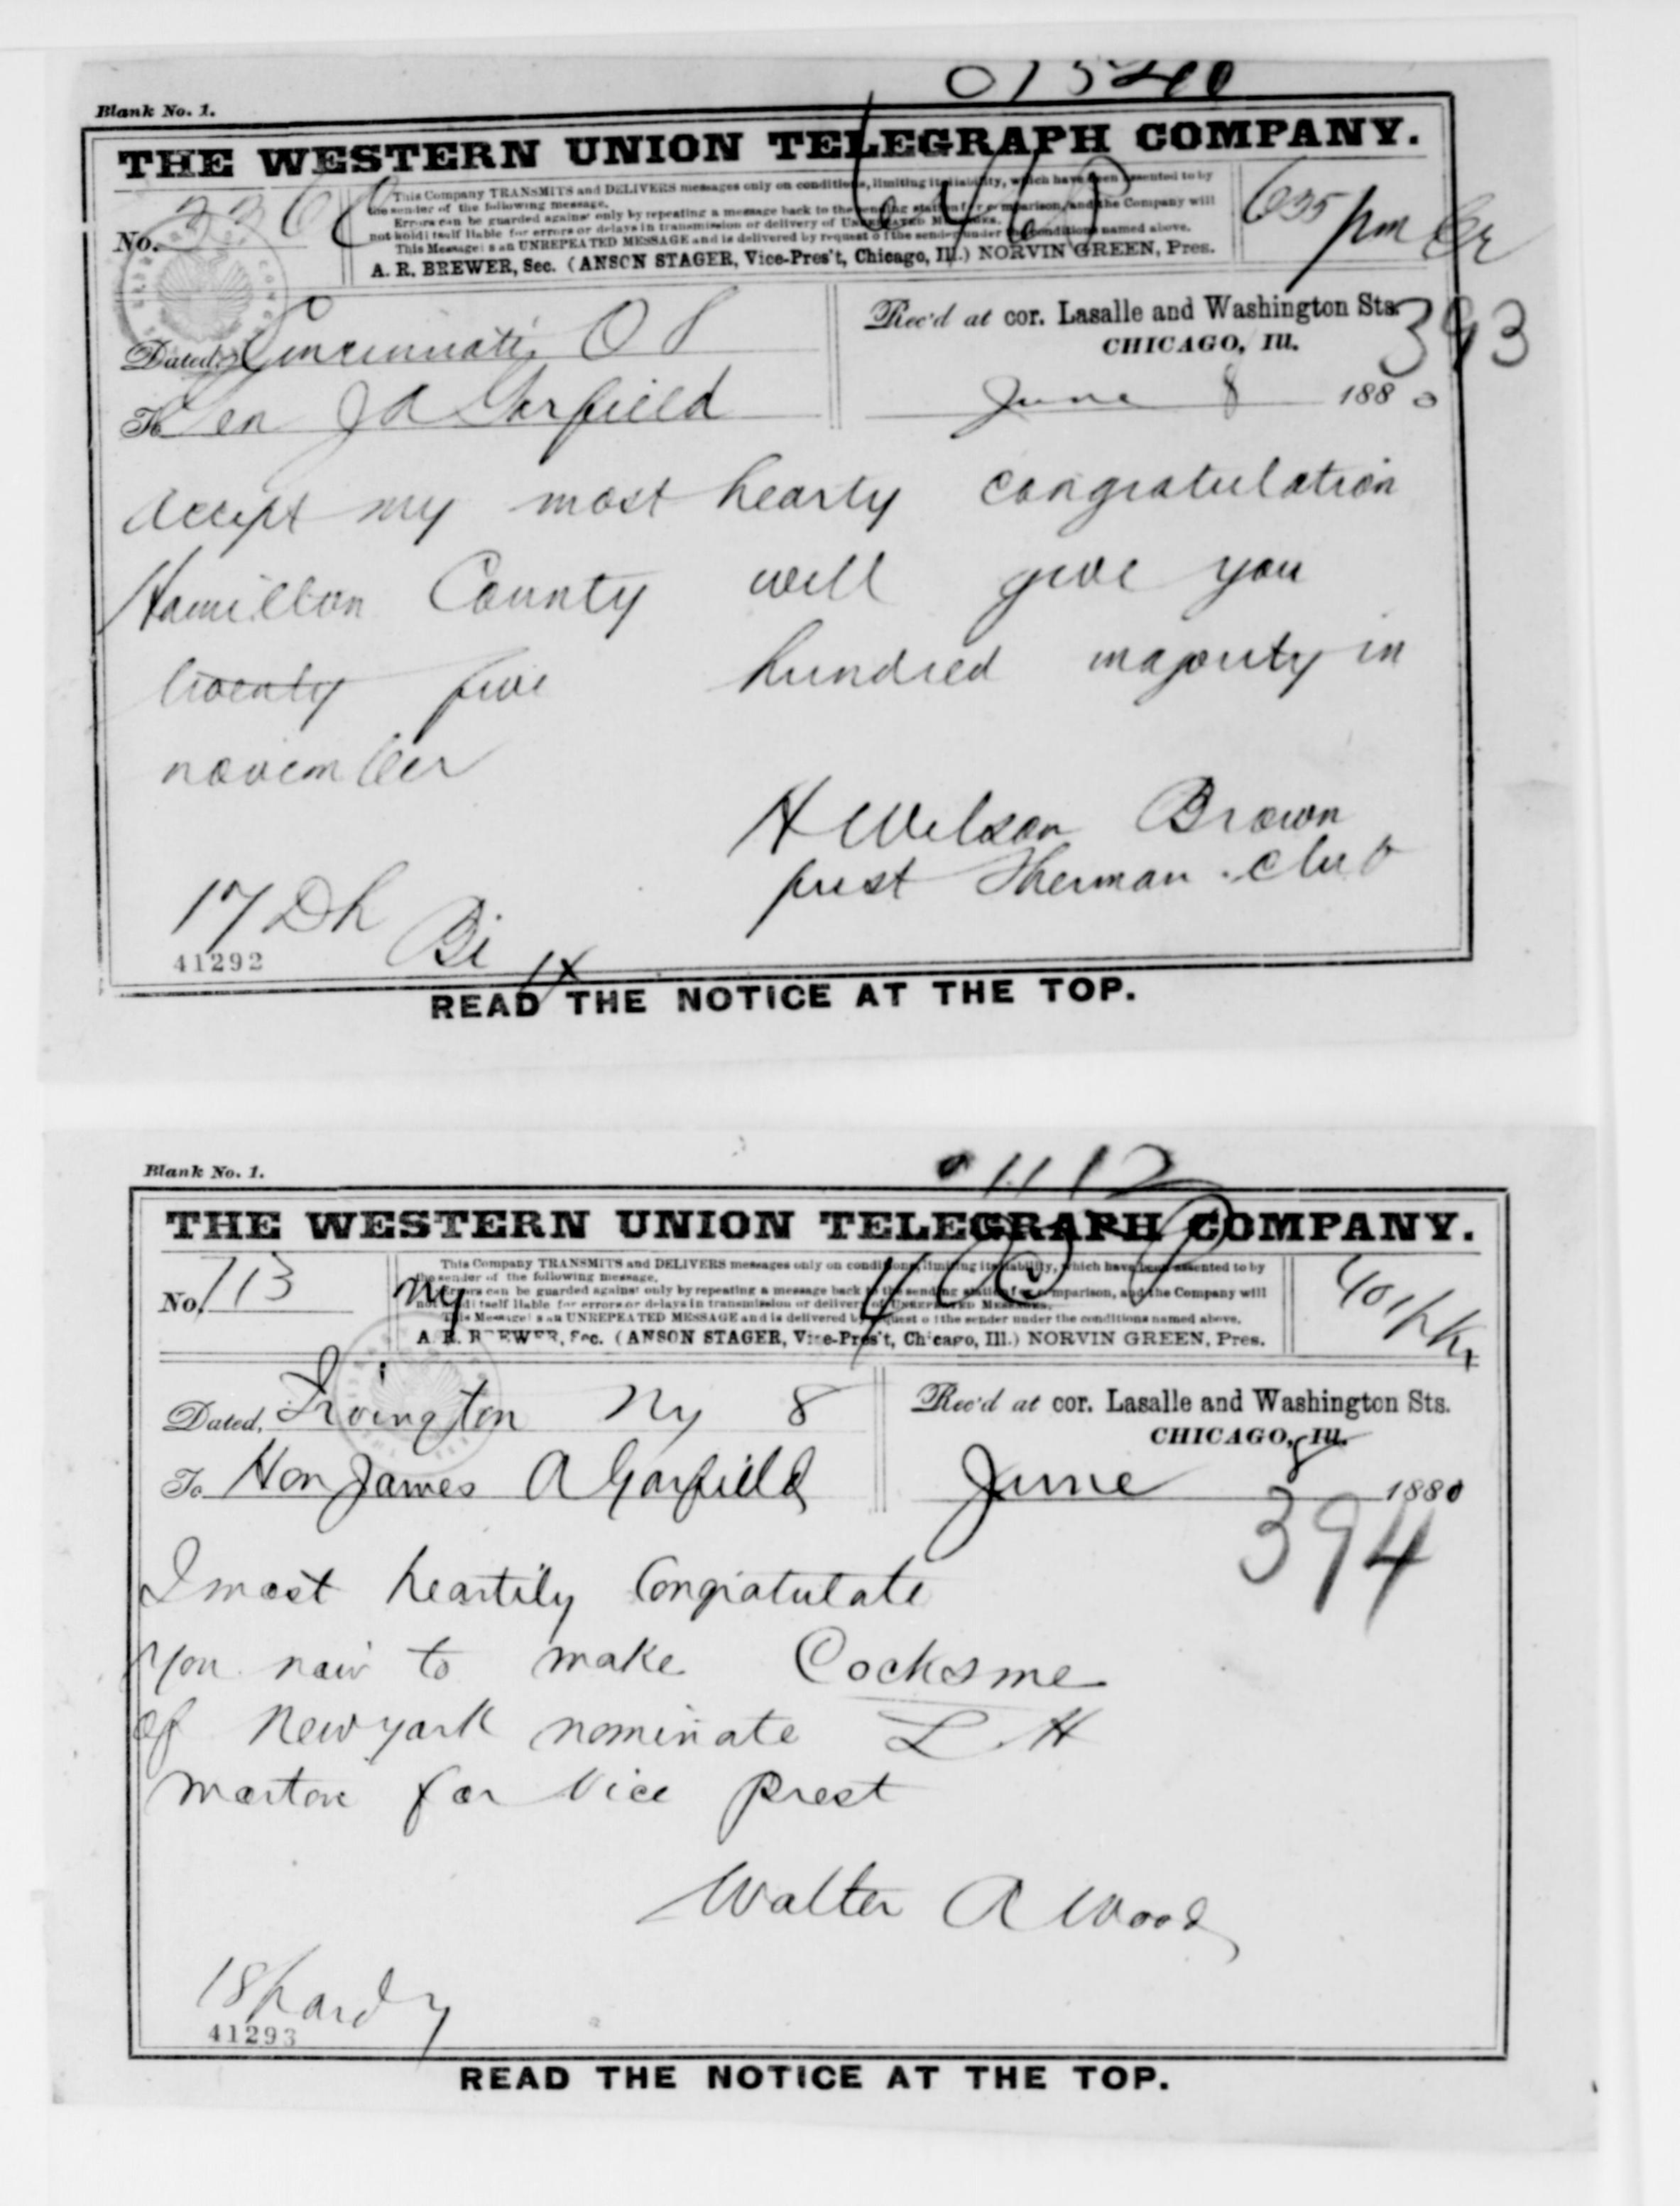 Blank No. 1.
THE WESTERN UNION TELEGRAPH COMPANY.
This Company TRANSMITS and DELIVERS messages only on conditions, limiting its liability, which have been assented to by
the sender of the following message.
Errors can be guarded against only by repeating a message back to the sending station for comparison, and the Company will
not hold itself liable for errors or delays in transmission or delivery of UNREPEATED MESSAGES.
This Message is an UNREPEATED MESSAGE and is delivered by request of the sender under the conditions named above.
A. R. BREWER, Sec. (ANSON STAGER, Vice-Pres't, Chicago, Ill.) NORVIN GREEN, Pres.
No.
635 pm
Dated, Cincinnati, O 8
Rec'd at cor. Lasalle and Washington Sts.
CHICAGO, Ill.
393
To Gen J A Garfield
June 8 1880
Accept my most hearty congratulation
Hamilton County will give you
twenty five hundred majority in
november
H Wilson Brown
prest Sherman club
17 Dh
Bi
41292
READ THE NOTICE AT THE TOP.
Blank No. 1.
1112
THE WESTERN UNION TELEGRAPH COMPANY.
No. 713
This Company TRANSMITS and DELIVERS messages only on conditions, limiting its liability, which have been assented to by
the sender of the following message.
Errors can be guarded against only by repeating a message back to the sending station for comparison, and the Company will
not hold itself liable for errors or delays in transmission or delivery of UNREPEATED MESSAGES.
This Message is an UNREPEATED MESSAGE and is delivered by request of the sender under the conditions named above.
A. R. BREWER, Sec. (ANSON STAGER, Vice-Pres't, Chicago, Ill.) NORVIN GREEN, Pres.
Dated, Irvington Ny 8
Rec'd at cor. Lasalle and Washington Sts.
CHICAGO, Ill.
To Hon James A Garfield
June 8 1880
394
I most heartily Congratulate
you now to make Cocksme
of New york nominate L H
morton for Vice prest
Walter A Wood
18 pardy
41293
READ THE NOTICE AT THE TOP.